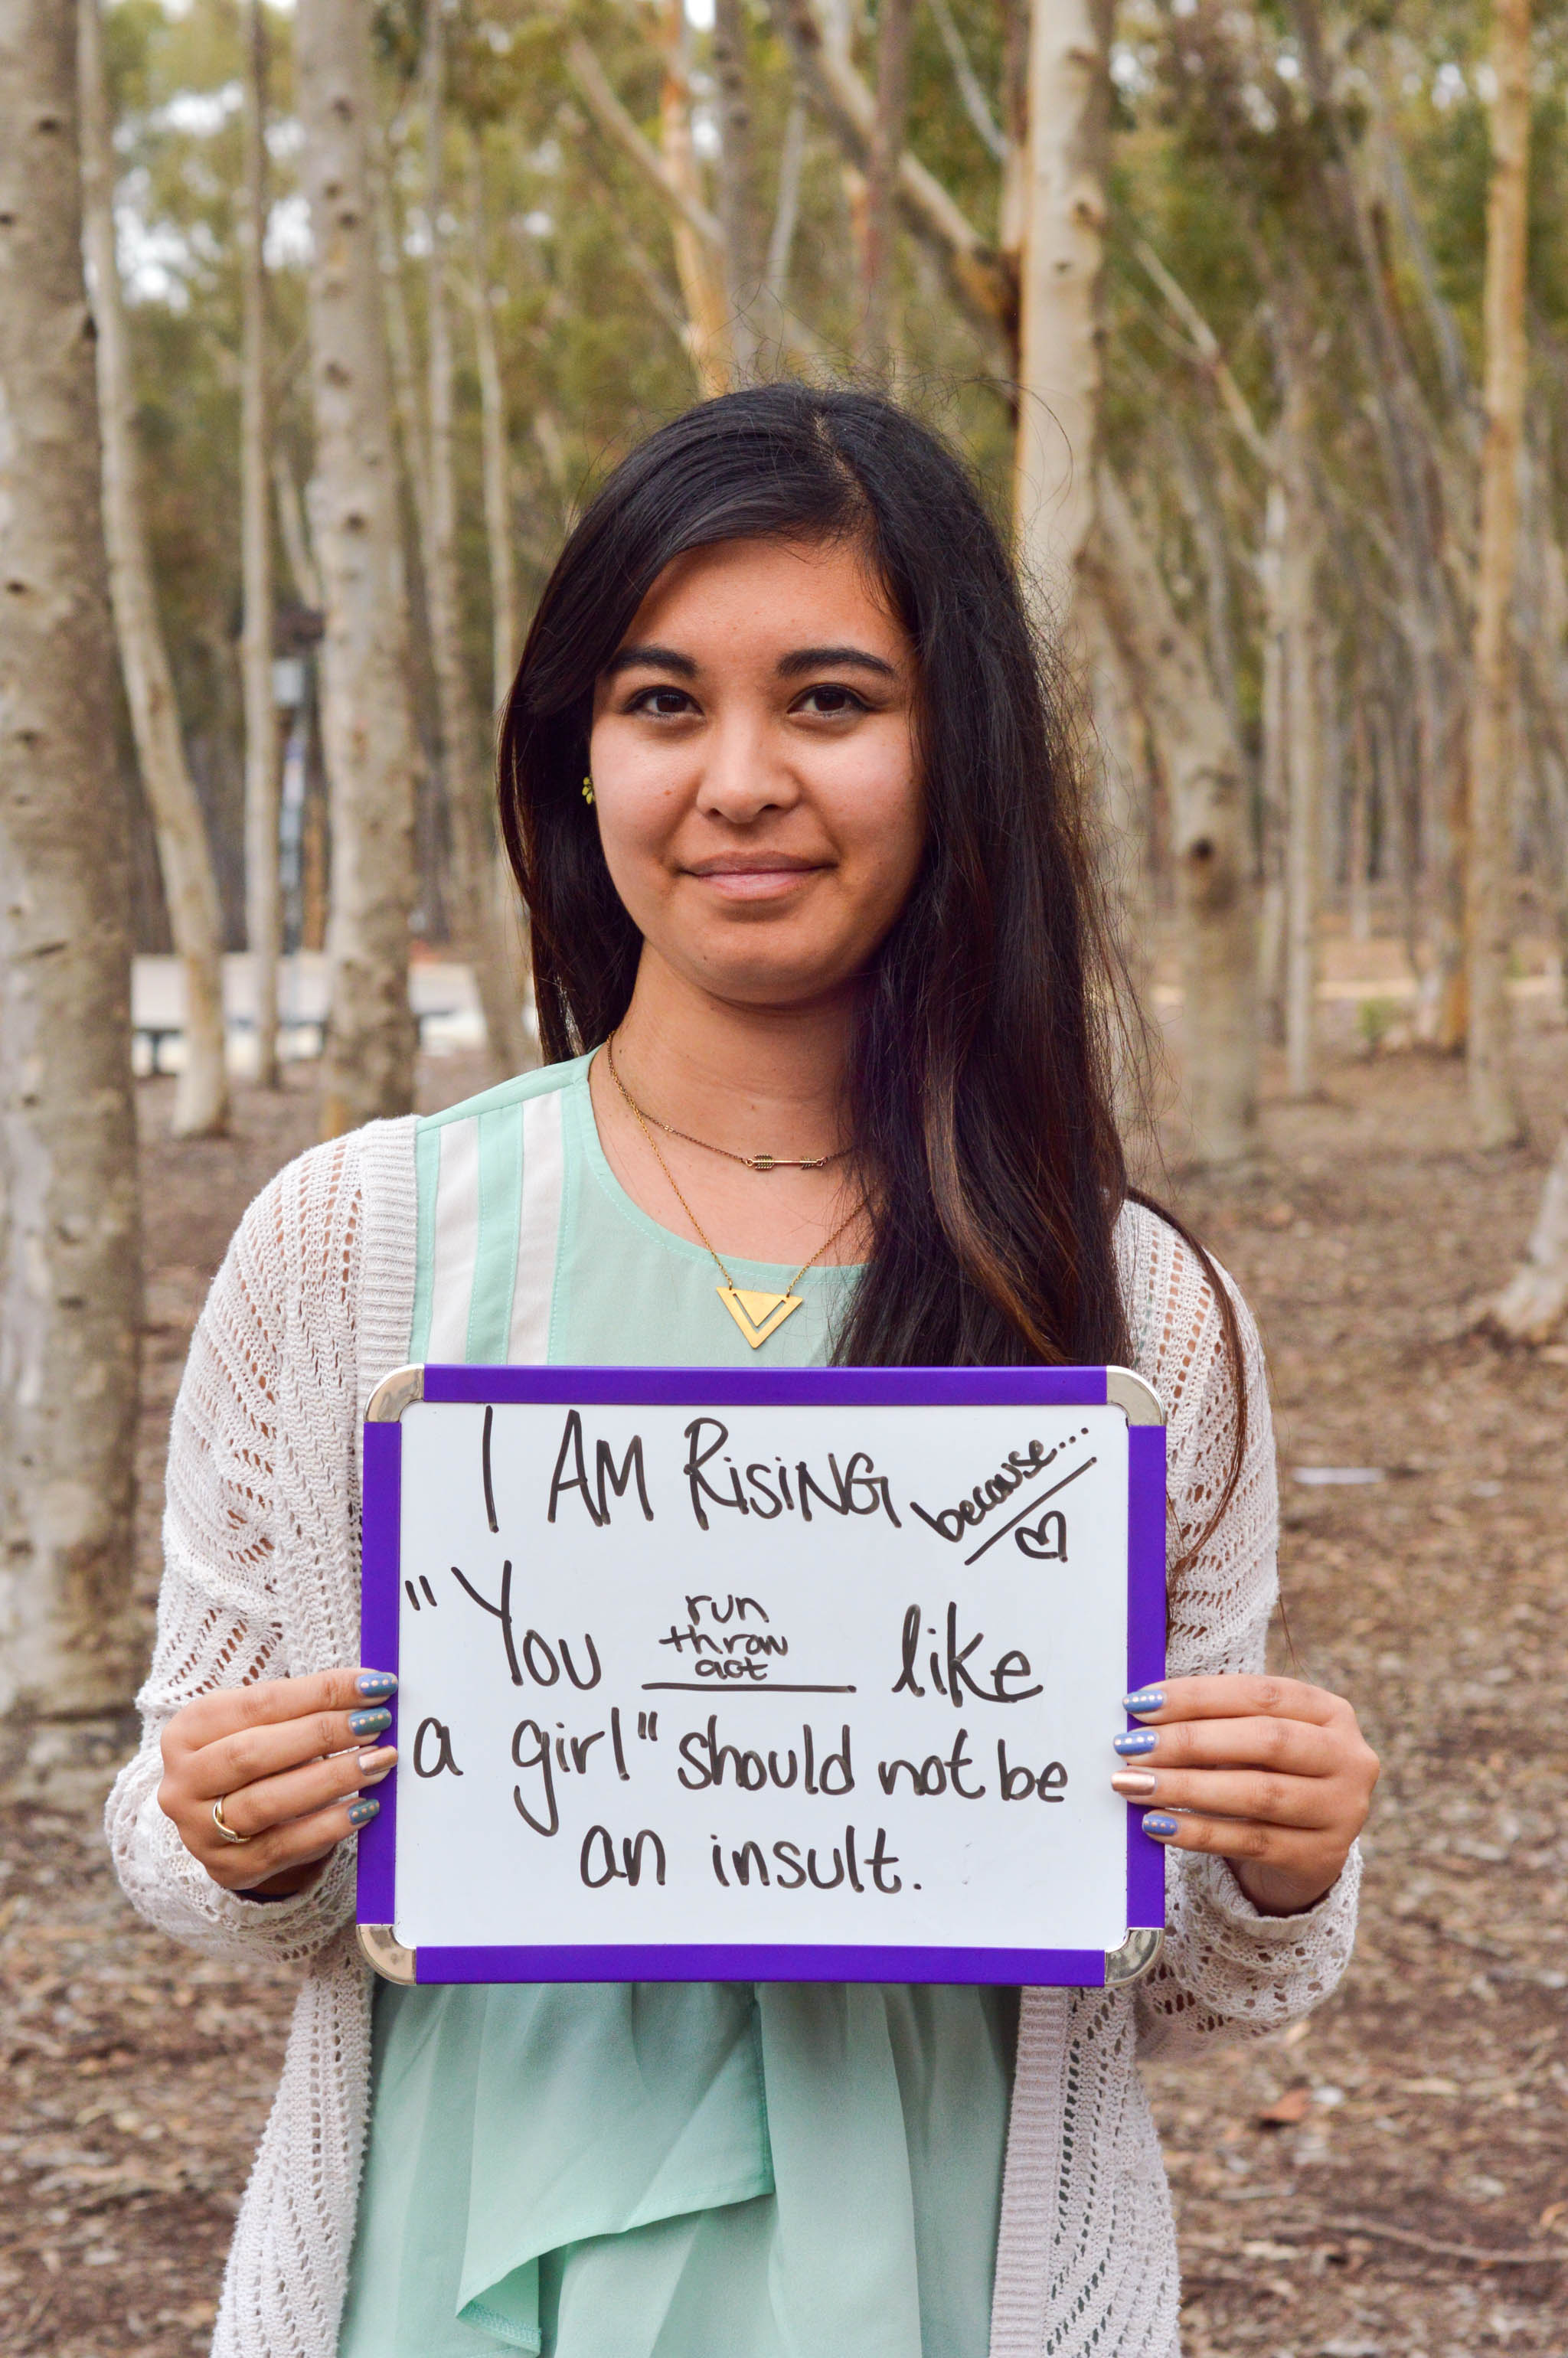 I AM RiSiNG because...
"You run like
throw
act
a girl" should not be
an insult.